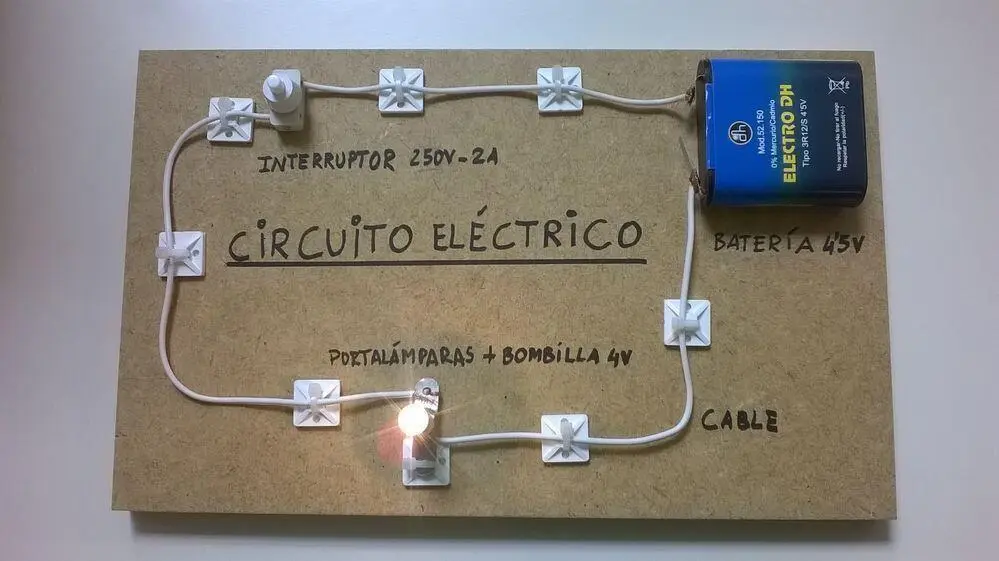 INTERRUPTOR 250V-2A
CIRCUITO ELÉCTRICO
PORTALÁMPARAS + BOMBILLA 4V
BATERÍA 4'5V
CABLE
dh
Mod.52.150
0% Mercurio/Cadmio
ELECTRO DH
Tipo 3R12/S 4'5V
No recargar-No tirar al fuego
Respetar la polaridad(+/-)
Pb